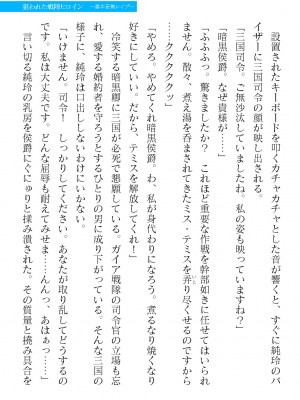 狙われた戦隊ヒロイン
設置されたキーボードを叩くカチャカチャとした音が響くと、すぐに純玲のバ
イザーに三国司令の顔が映し出される。
「三国司令。ご無沙汰していましたね。私の姿も映っていますか?」
「暗黒侯爵。なぜ貴様が……」
「ふふふっ。驚きましたか? これほど重要な作戦を幹部如きに任せてはいられ
ません。散々、煮え湯を呑まされてきたミス・テミスを弄り尽くせるのですから
……クククククッ」
「やめろ。やめてくれ暗黒侯爵。わ、私が身代わりになろう。煮るなり焼くなり
好きにしていい。だから、テミスを解放してくれ!」
冷笑する暗黒卿に三国が必死で懇願している。ガイア戦隊の司令官の立場も忘
れ、愛する婚約者を守ろうとするひとりの男に成り下がっている。そんな三国の
様子に、純玲は口出ししないわけにいかない。
「いけません。司令! しっかりしてください。あなたが取り乱してどうするの
です。私は大丈夫です。どんな屈辱も耐えてみせま……んんっ、あはぁっ……」
言い淀む純玲の乳房を侯爵にぐにゅりと揉み潰された。その質量と撓み具合を